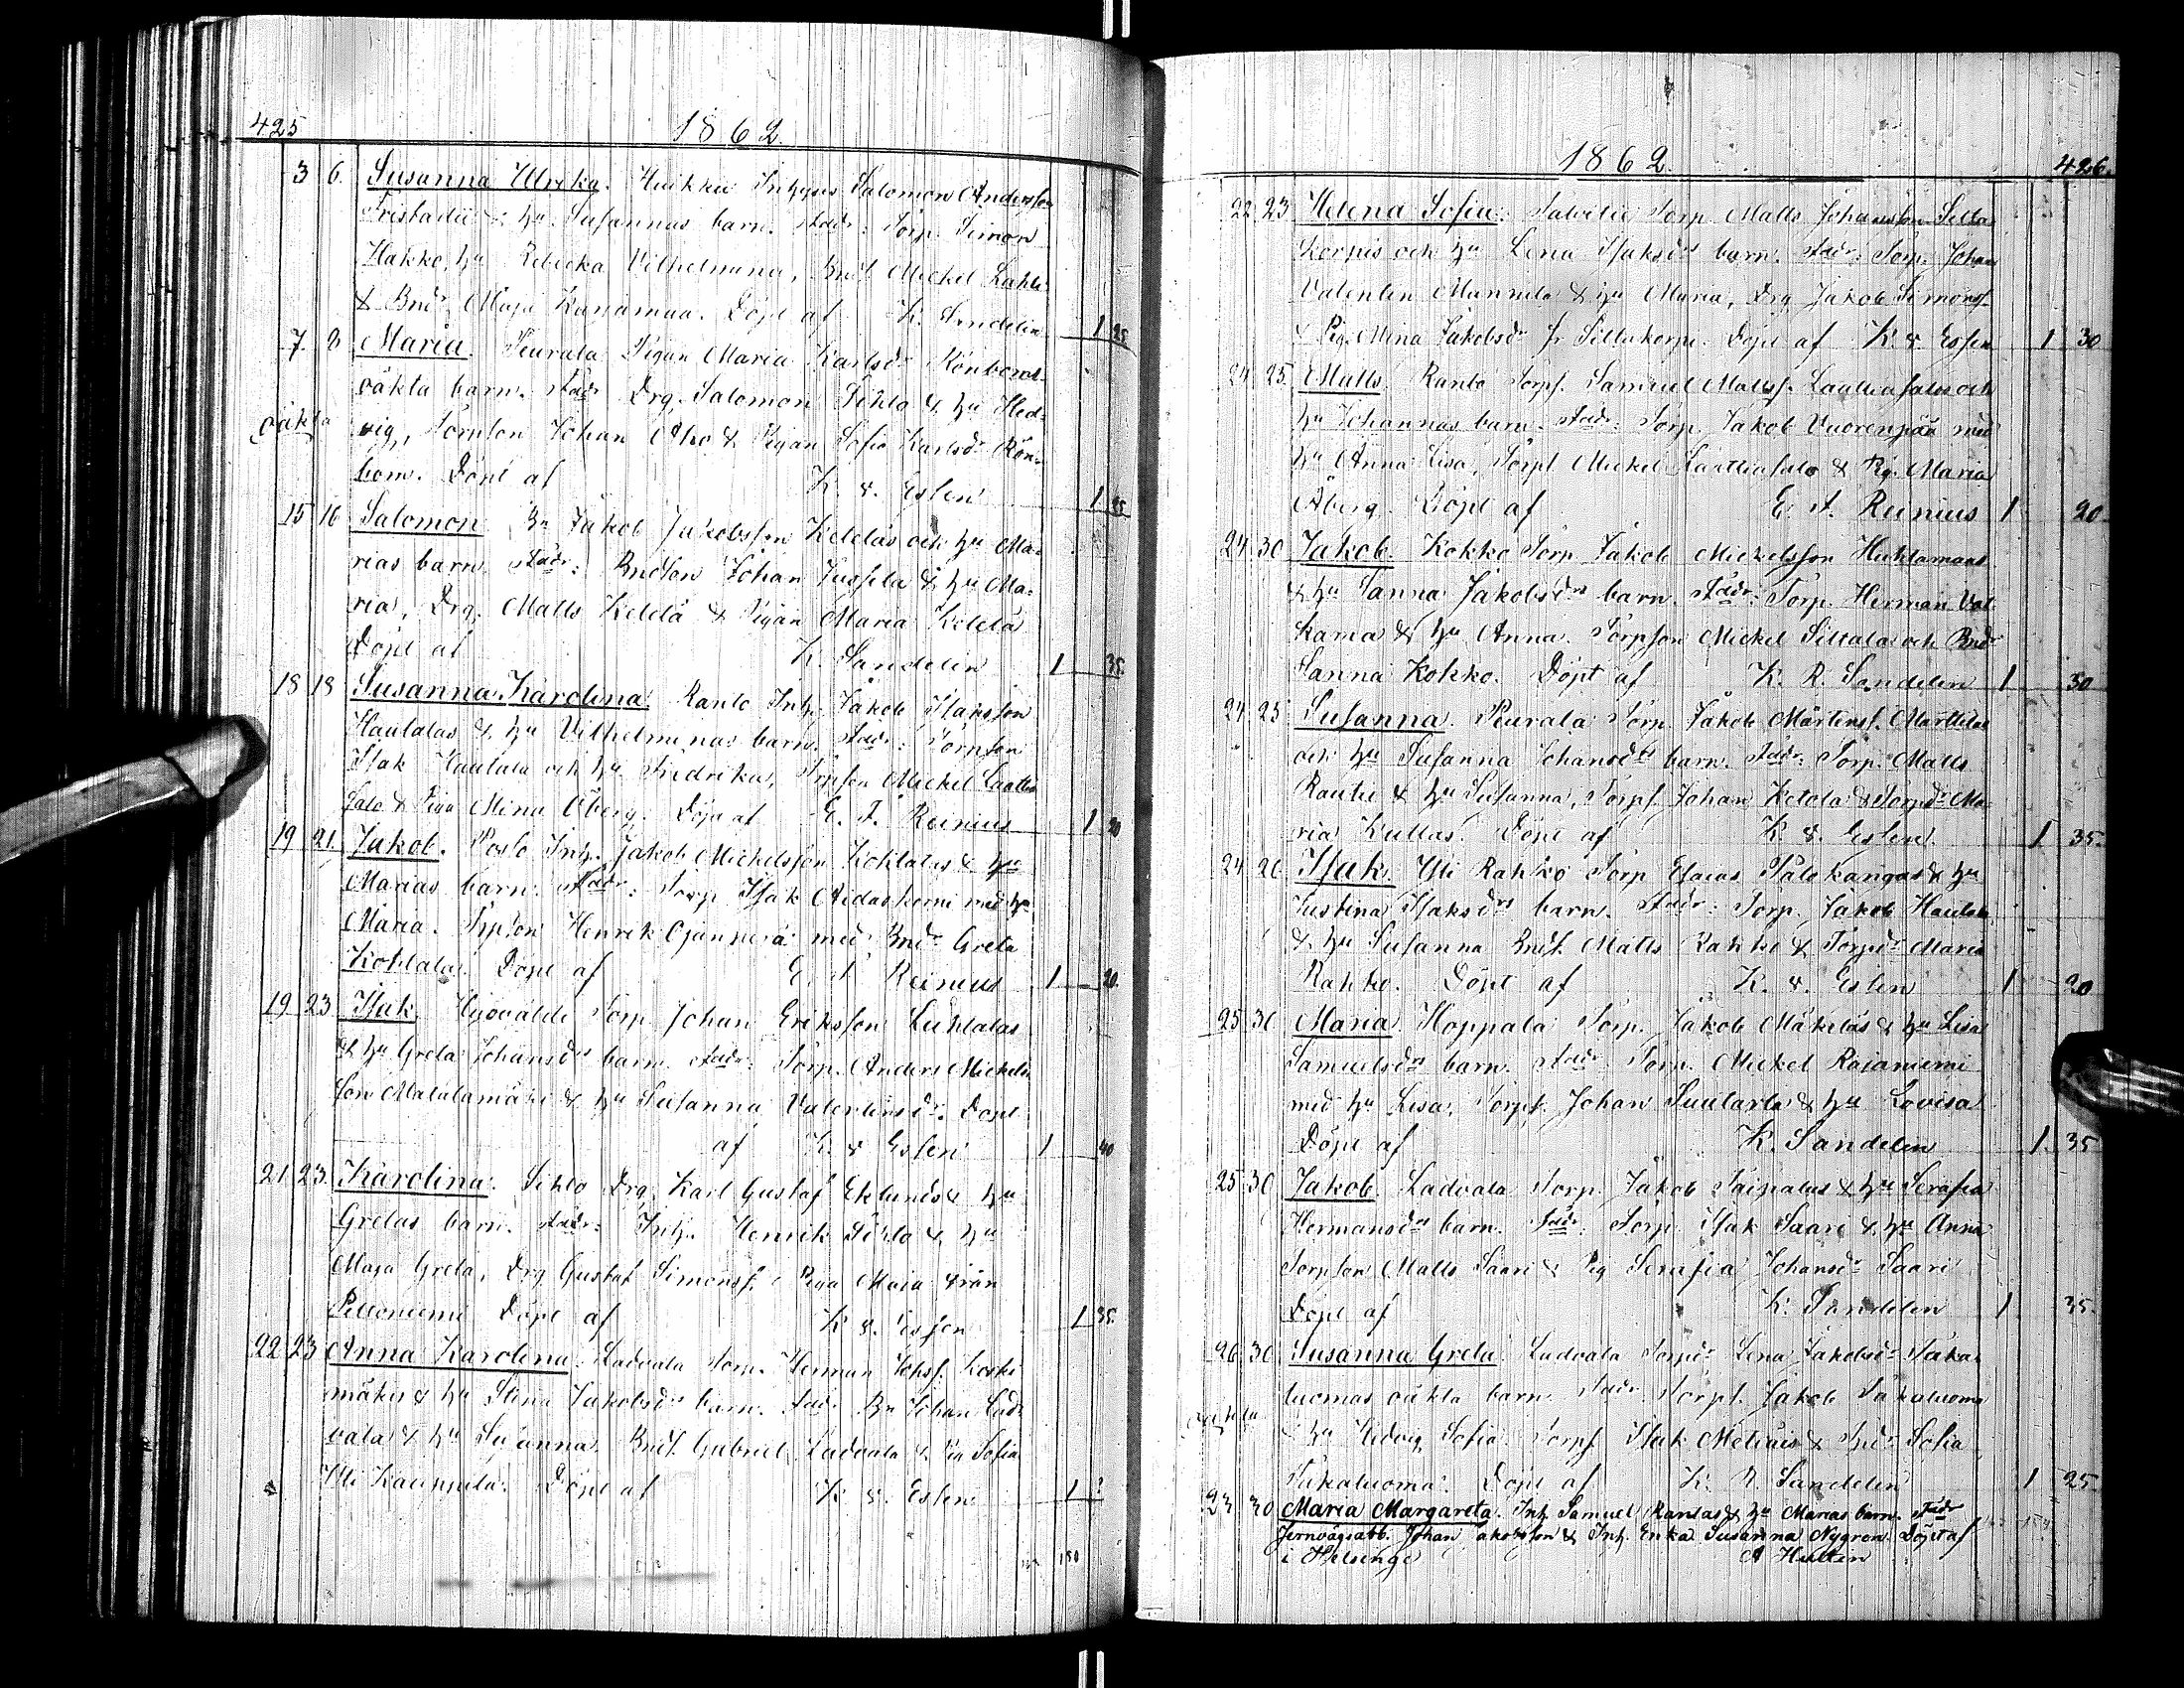 425
1862
3 6. Susanna Ulrika. Huikku Inhyses Salomon Andersson
Tristadii & hu Susannas barn. Fadr: Torp. Simon
Hakko, hu Rebecka Vilhelmina, Bndr Mickel Lahti
& Bndr Maja Kanamaa. Döpt af K. Sandelin 1 25
7. 8 Maria. Peurala Pigan Maria Karlsdr Rönboms
oäkta barn. Fadr Drg. Salomon Sihlo & hu Hed-
oäkta vig, Torpson Johan Aho & Pigan Sofia Karlsdr Rön-
bom. Döpt af K. v. Essen 1 25
15 16 Salomon Bn Jakob Jakobsson Keteläs och hu Ma-
rias barn. Fadr: Bndson Johan Jussila & hu Ma-
ria, Drg. Matts Ketelä & Pigan Maria Ketelä
Döpt af K. Sandelin 1 35.
18 18 Susanna Karolina. Ranto Inh. Jakob Isaksson
Hautalas & hu Vilhelminas barn. Fadr: Torpson
Isak Hautala och hu Fredrika, Torpson Mickel Laattia
salo & Piga Mina Öberg. Döpt af E. F. Reinius 1 20
19 21. Jakob. Posto Inh. Jakob Mickelsson Kohtalas & hu
Marias barn. Fadr: Torp Isak Aidasniemi med hu
Maria. Torpson Henrik Ojanperä med Bndr Greta
Kohtala. Döpt af E. F. Reinius 1 20.
19 23 Isak. Hyövälde Torp Johan Eriksson Luhtalas
& hu Greta Johansdrs barn. Fadr: Torp. Anders Mickels-
son Matalamäki & hu Susanna Valentinsdr. Döpt
af K. v. Essen 1 40
21 23. Karolina. Sihlo Drg. Karl Gustaf Eklunds & hu
Gretas barn. Fadr: Inh. Henrik Sihlo & hu
Maja Greta, Drg Gustaf Simonsf. Piga Maja från
Peltoniemi Döpt af K. v. Essen 1 35.
22 23 Anna Karolina. Ladvala Torp. Herman Johsf. Koski
mäkis & hu Stina Jakobsdrs barn. Fadr Bn Johan Lad-
vala & hu Susanna. Bndf. Gabriel Ladvala & Pig Sofia
Yli Kauppila. Döpt af K. v. Essen 1
150
1862.
426.
22 23 Helena Sofia. Salvilie Torp. Matts Johansson Silta-
korpis och hu Lena Isaksdrs barn. Fadr: Torp. Johan
Valentin Mannila & hu Maria, Drg Jakob Simonsf.
& Pig. Mina Jakobsdr fr Siltakorpi Döpt af K. v. Essen 1 30
24 25. Matts. Ranto Torpf. Samuel Mattsf. Laattiasalos och
hu Johannas barn. Fadr: Torp. Jakob Vuorenpää med
hu Anna Lisa, Torpf. Mickel Laattiasalo & Pig. Maria
Åberg. Döpt af E. F. Reinius 1 20
24 30 Jakob. Kokko Torp. Jakob Mickelsson Huhtamaas
& hu Sanna Jakobsdrs barn. Fadr: Torp. Herman Val-
kama & hu Anna. Torpson Mickel Siltala och Bndr
Sanna Kokko. Döpt af K. R. Sandelin 1 30
24 25. Susanna. Peurala Torp. Jakob Mårtensf. Marttilas
och hu Susanna Johansdrs barn. Fadr: Torp. Matts
Rautu & hu Susanna, Torpf. Johan Ketola & Torpdr Ma-
ria Kullas. Döpt af K. v. Essen. 1 35.
24 26 Isak. Yli Rahko Torp Esaias Palokangas & hu
Justina Isaksdrs barn. Fadr: Torp. Jakob Hautala
& hu Susanna Bndf. Matts Rahko & Torpdr Maria
Rahko. Döpt af K. v. Essen 1 20
25 30 Maria. Hoppala Torp. Jakob Mäkeläs & hu Lisa
Samuelsdrs barn. Fadr: Torp. Mickel Rajaniemi
med hu Lisa, Torpf. Johan Suutarla & hu Lovisa
Döpt af K. Sandelin 1. 35
25 30 Jakob. Ladvala Torp. Jakob Saipalas & hu Serafia
Hermansdrs barn. Fadr: Torp. Isak Saari & hu Anna
Torpson Matts Saari & Pig Serafia Johansdr Saari
Döpt af K. Sandelin 1. 35.
26 30 Susanna Greta. Ladvala Torpdr Lena Jakobsdr Taka-
luomas oäkta barn. Fadr Torpf. Jakob Takaluoma
oäkta & hu Hedvig Sofia. Torpf Isak Metsäis & Tpdr Sofia
Takaluoma. Döpt af K. R. Sandelin 1 25.
23 30 Maria Margareta. Inh. Samuel Rantas & hu Marias barn. Fadr
Jernvägsarb. Johan Jakobsson & Inh. Enka Susanna Nygren. Döpt af
i Helsinge A Hultin